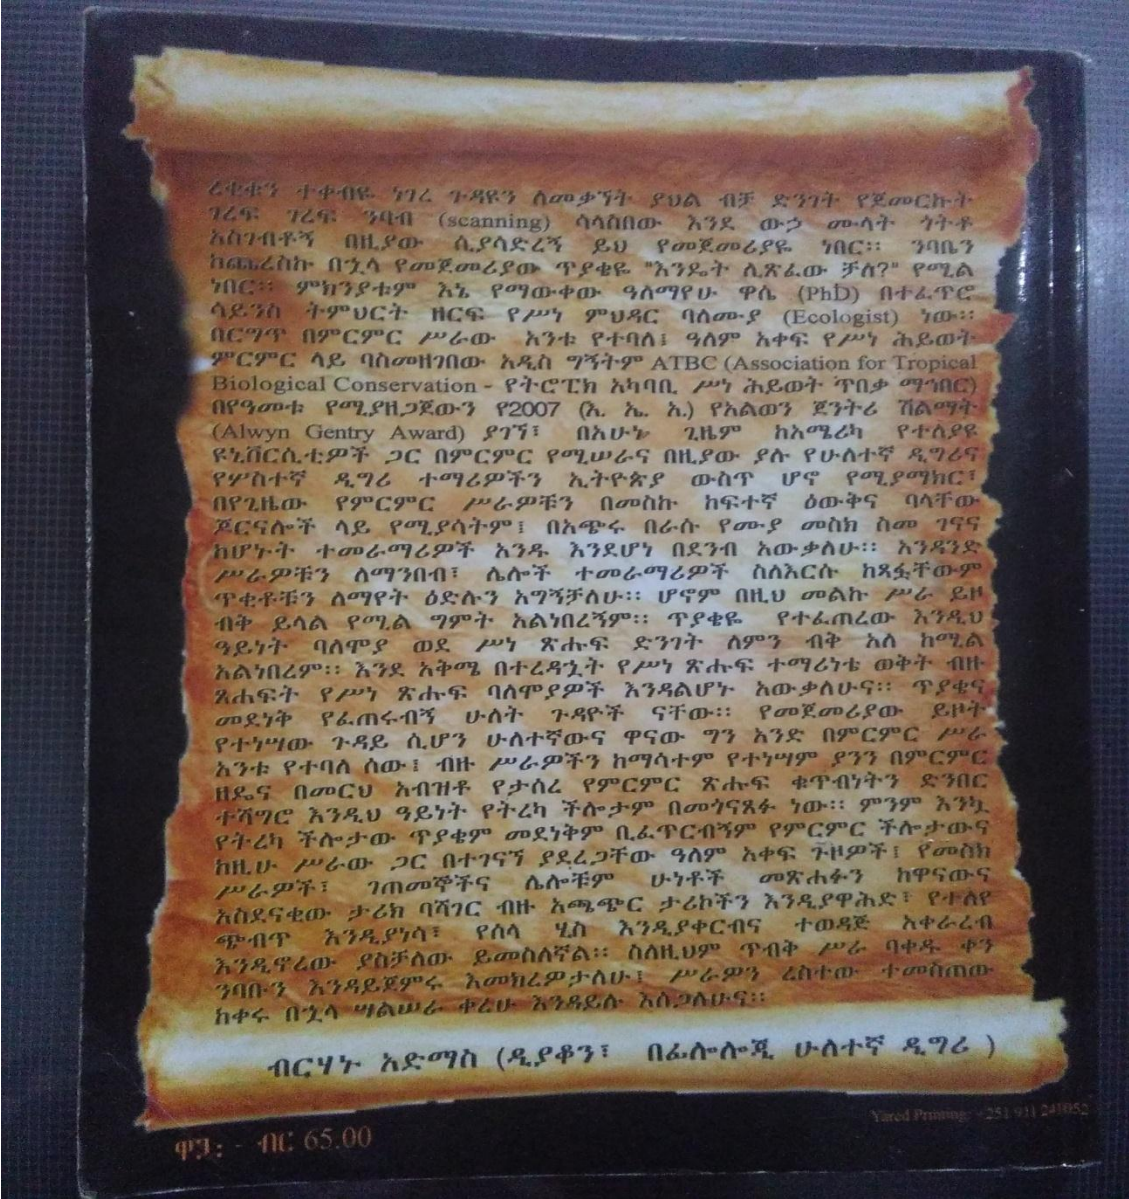 ረቂቁን ተቀብዬ ነገረ ጉዳዩን ለመቃኘት ያህል ብቻ ድንገት የጀመርኩት
ገረፍ ገረፍ ንባብ (scanning) ሳላስበው እንደ ውኃ ሙላት ጎትቶ
አስገብቶኝ በዚያው ሲያሳድረኝ ይህ የመጀመሪያዬ ነበር፡፡ ንባቤን
ከጨረስኩ በኋላ የመጀመሪያው ጥያቄዬ "እንዴት ሊጽፈው ቻለ?" የሚል
ነበር፡፡ ምክንያቱም እኔ የማውቀው ዓለማየሁ ዋሴ (PhD) በተፈጥሮ
ሳይንስ ትምህርት ዘርፍ የሥነ ምህዳር ባለሙያ (Ecologist) ነው፡፡
በርግጥ በምርምር ሥራው አንቱ የተባለ፤ ዓለም አቀፍ የሥነ ሕይወት
ምርምር ላይ ባስመዘገበው አዲስ ግኝትም ATBC (Association for Tropical
Biological Conservation - የትሮፒክ አካባቢ ሥነ ሕይወት ጥበቃ ማኅበር)
በየዓመቱ የሚያዘጋጀውን የ2007 (እ. ኤ. አ.) የአልወን ጀንትሪ ሽልማት
(Alwyn Gentry Award) ያገኘ፣ በአሁኑ ጊዜም ከአሜሪካ የተለያዩ
ዩኒቨርሲቲዎች ጋር በምርምር የሚሠራና በዚያው ያሉ የሁለተኛ ዲግሪና
የሦስተኛ ዲግሪ ተማሪዎችን ኢትዮጵያ ውስጥ ሆኖ የሚያማክር፣
በየጊዜው የምርምር ሥራዎቹን በመስኩ ከፍተኛ ዕውቅና ባላቸው
ጆርናሎች ላይ የሚያሳትም፤ በአጭሩ በራሱ የሙያ መስክ ስመ ገናና
ከሆኑት ተመራማሪዎች አንዱ እንደሆነ በደንብ አውቃለሁ፡፡ አንዳንድ
ሥራዎቹን ለማንበብ፣ ሌሎች ተመራማሪዎች ስለእርሱ ከጻፏቸውም
ጥቂቶቹን ለማየት ዕድሉን አግኝቻለሁ፡፡ ሆኖም በዚህ መልኩ ሥራ ይዞ
ብቅ ይላል የሚል ግምት አልነበረኝም፡፡ ጥያቄዬ የተፈጠረው እንዲህ
ዓይነት ባለሞያ ወደ ሥነ ጽሑፍ ድንገት ለምን ብቅ አለ ከሚል
አልነበረም፡፡ እንደ አቅሜ በተረዳኋት የሥነ ጽሑፍ ተማሪነቴ ወቅት ብዙ
ጸሐፍት የሥነ ጽሑፍ ባለሞያዎች እንዳልሆኑ አውቃለሁና፡፡ ጥያቄና
መደነቅ የፈጠሩብኝ ሁለት ጉዳዮች ናቸው፡፡ የመጀመሪያው ይዞት
የተነሣው ጉዳይ ሲሆን ሁለተኛውና ዋናው ግን አንድ በምርምር ሥራ
አንቱ የተባለ ሰው፤ ብዙ ሥራዎችን ከማሳተም የተነሣም ያንን በምርምር
ዘዴና በመርህ አብዝቶ የታሰረ የምርምር ጽሑፍ ቁጥብነትን ድንበር
ተሻግሮ እንዲህ ዓይነት የትረካ ችሎታም በመጎናጸፉ ነው፡፡ ምንም እንኳ
የትረካ ችሎታው ጥያቄም መደነቅም ቢፈጥርብኝም የምርምር ችሎታውና
ከዚሁ ሥራው ጋር በተገናኘ ያደረጋቸው ዓለም አቀፍ ጉዞዎች፤ የመስክ
ሥራዎች፣ ገጠመኞችና ሌሎቹም ሁነቶች መጽሐፉን ከዋናውና
አስደናቂው ታሪክ ባሻገር ብዙ አጫጭር ታሪኮችን እንዲያዋሕድ፣ የተለየ
ጭብጥ እንዲያነሳ፣ የሰላ ሂስ እንዲያቀርብና ተወዳጅ አቀራረብ
እንዲኖረው ያስቻለው ይመስለኛል፡፡ ስለዚህም ጥብቅ ሥራ ባቀዱ ቀን
ንባቡን እንዳይጀምሩ እመክረዎታለሁ፤ ሥራዎን ረስተው ተመስጠው
ከቀሩ በኋላ ሣልሠራ ቀረሁ እንዳይሉ እሰጋለሁና፡፡
ብርሃኑ አድማስ (ዲያቆን፣ በፊሎሎጂ ሁለተኛ ዲግሪ )
Yared Printing: +251 911 241052
ዋጋ: - ብር 65.00